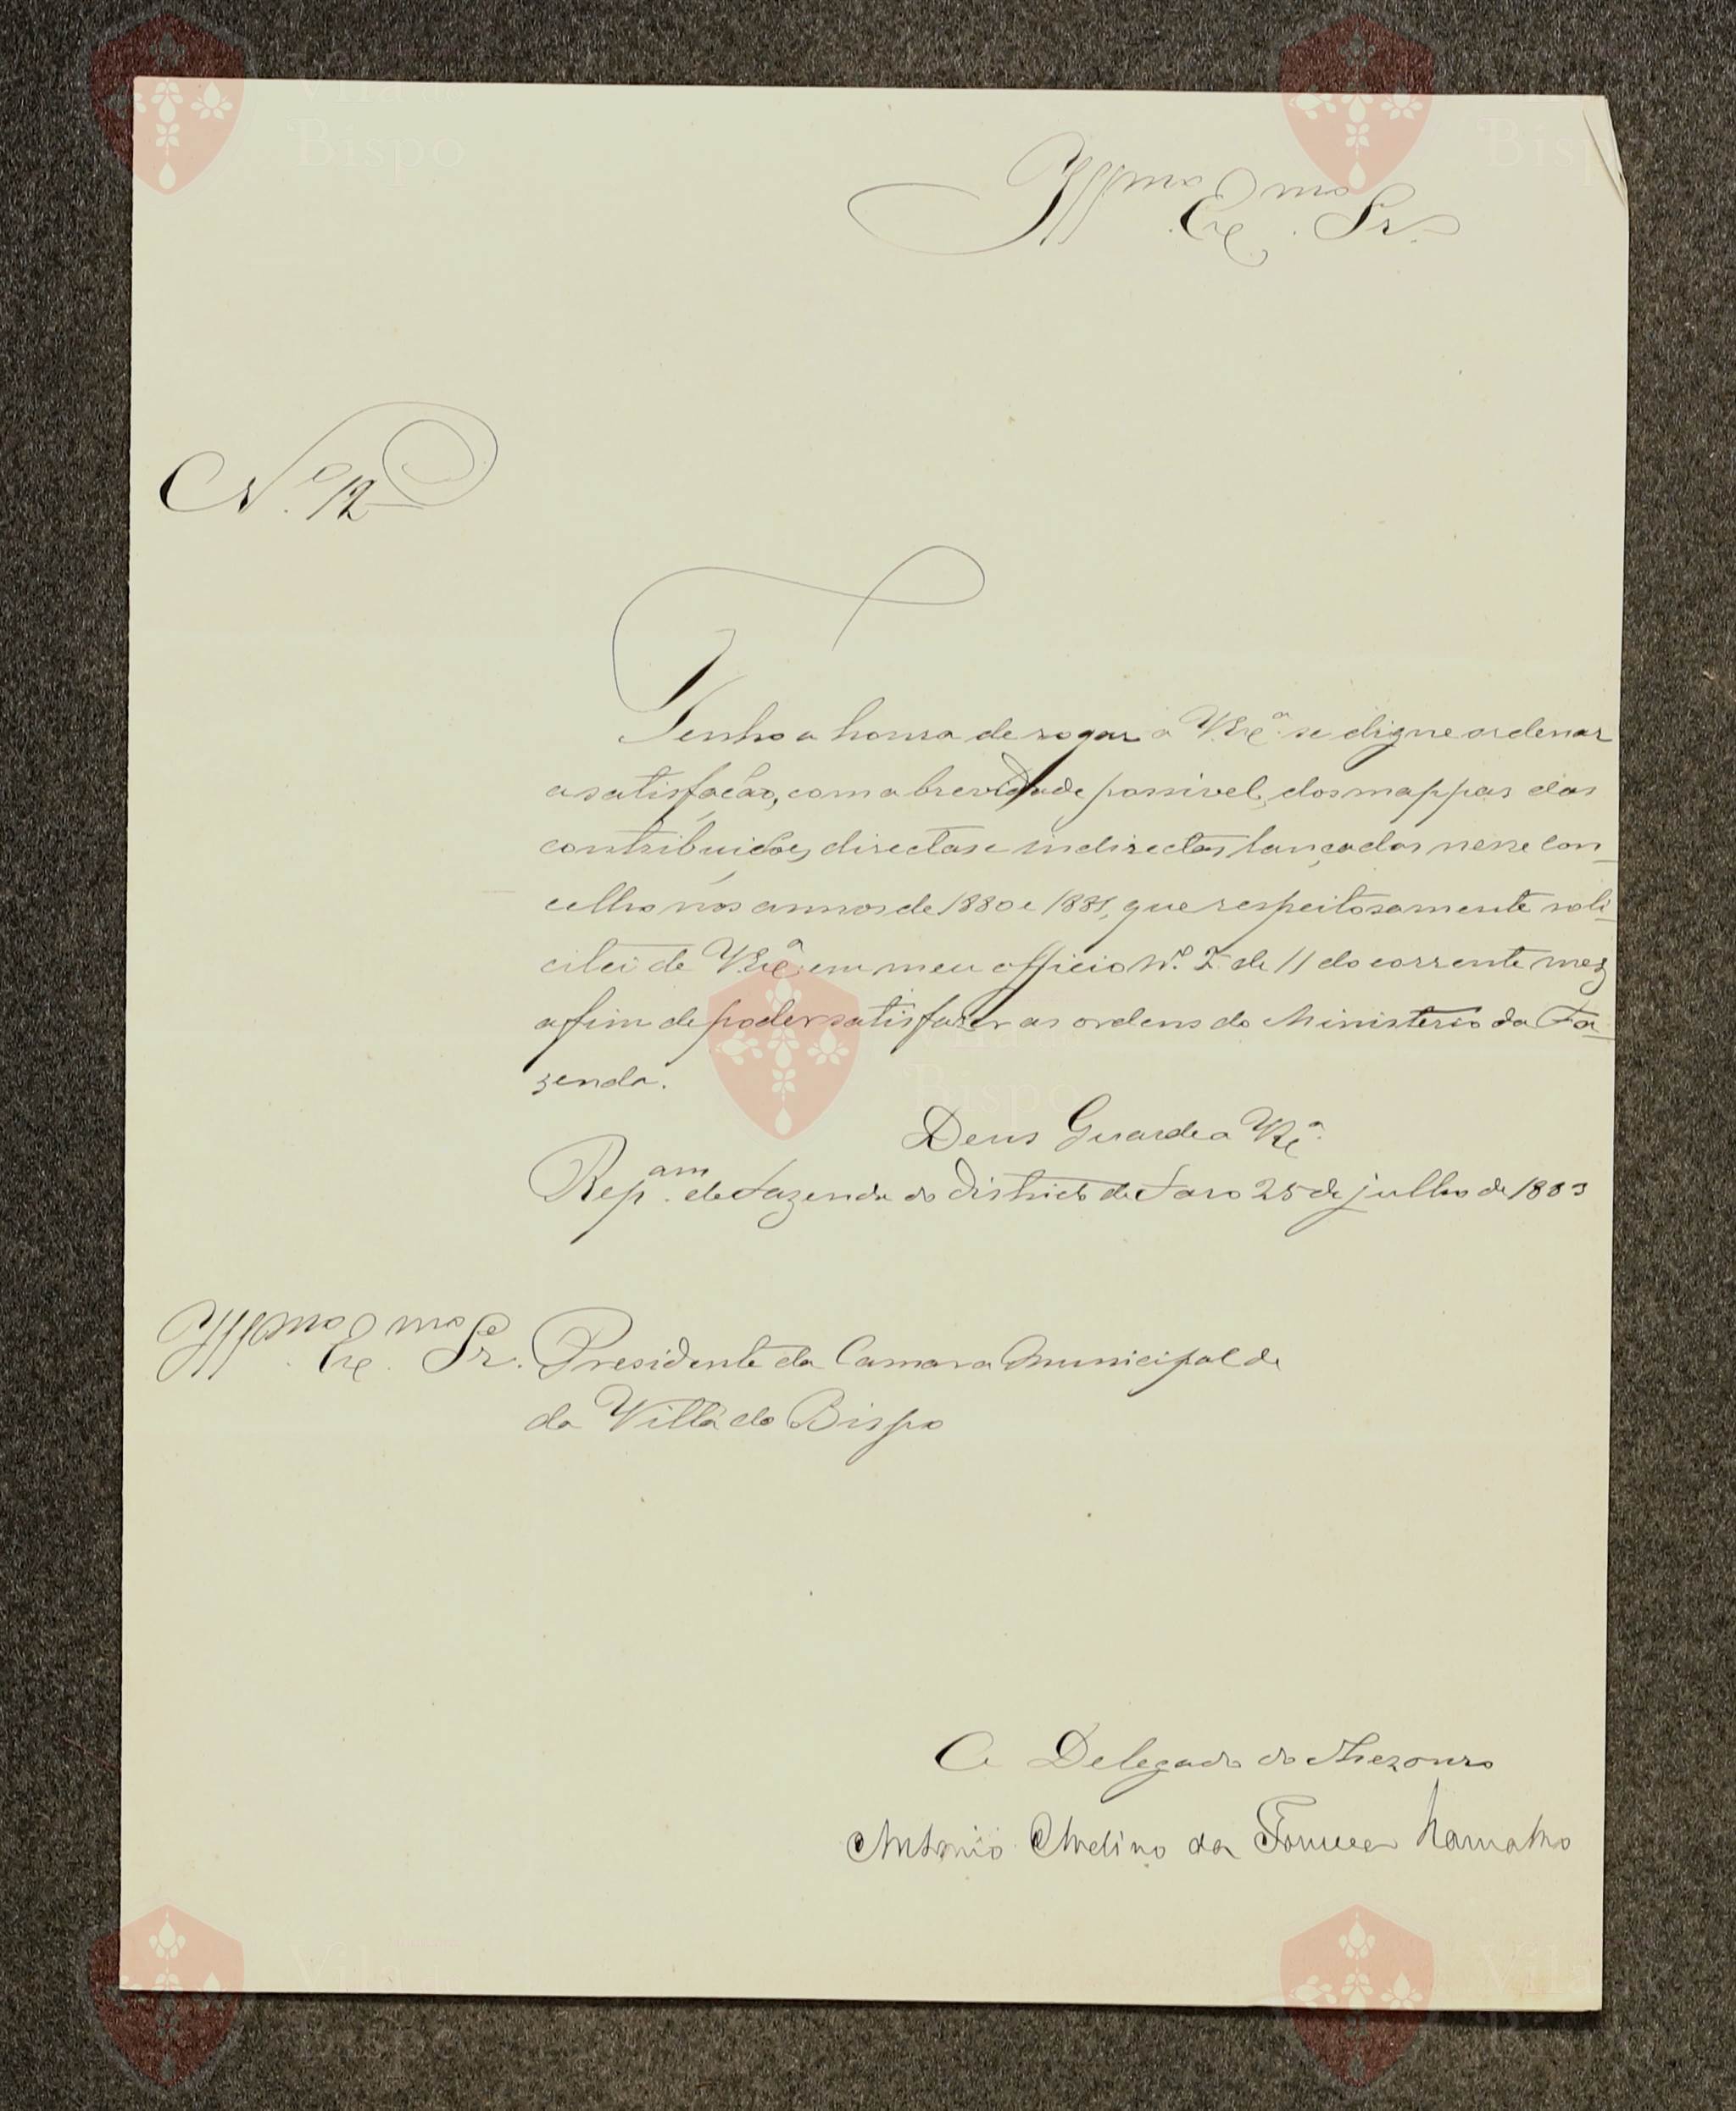 Illmo Exmo Sr.
N.º 12
Tenho a honra de rogar a V.Exª se digne ordenar
a satisfação, com a brevidade possivel, dos mappas das
contribuições directas e indirectas lançadas nesse con-
celho nos annos de 1880 e 1881, que respeitosamente soli-
citei de V.Exª em meu officio N.º 2 de 11 do corrente mez
afim de poder satisfazer as ordens do Ministerio da Fa-
zenda.
Deus Guarde a V.Exª
Repam. de Fazenda do Districto de Faro 25 de julho de 1883
Illmo. Exmo. Sr. Presidente da Camara Municipal de
da Villa do Bispo
O Delegado do Thezouro
Antonio Avelino da Fonseca
Vila do
Bispo